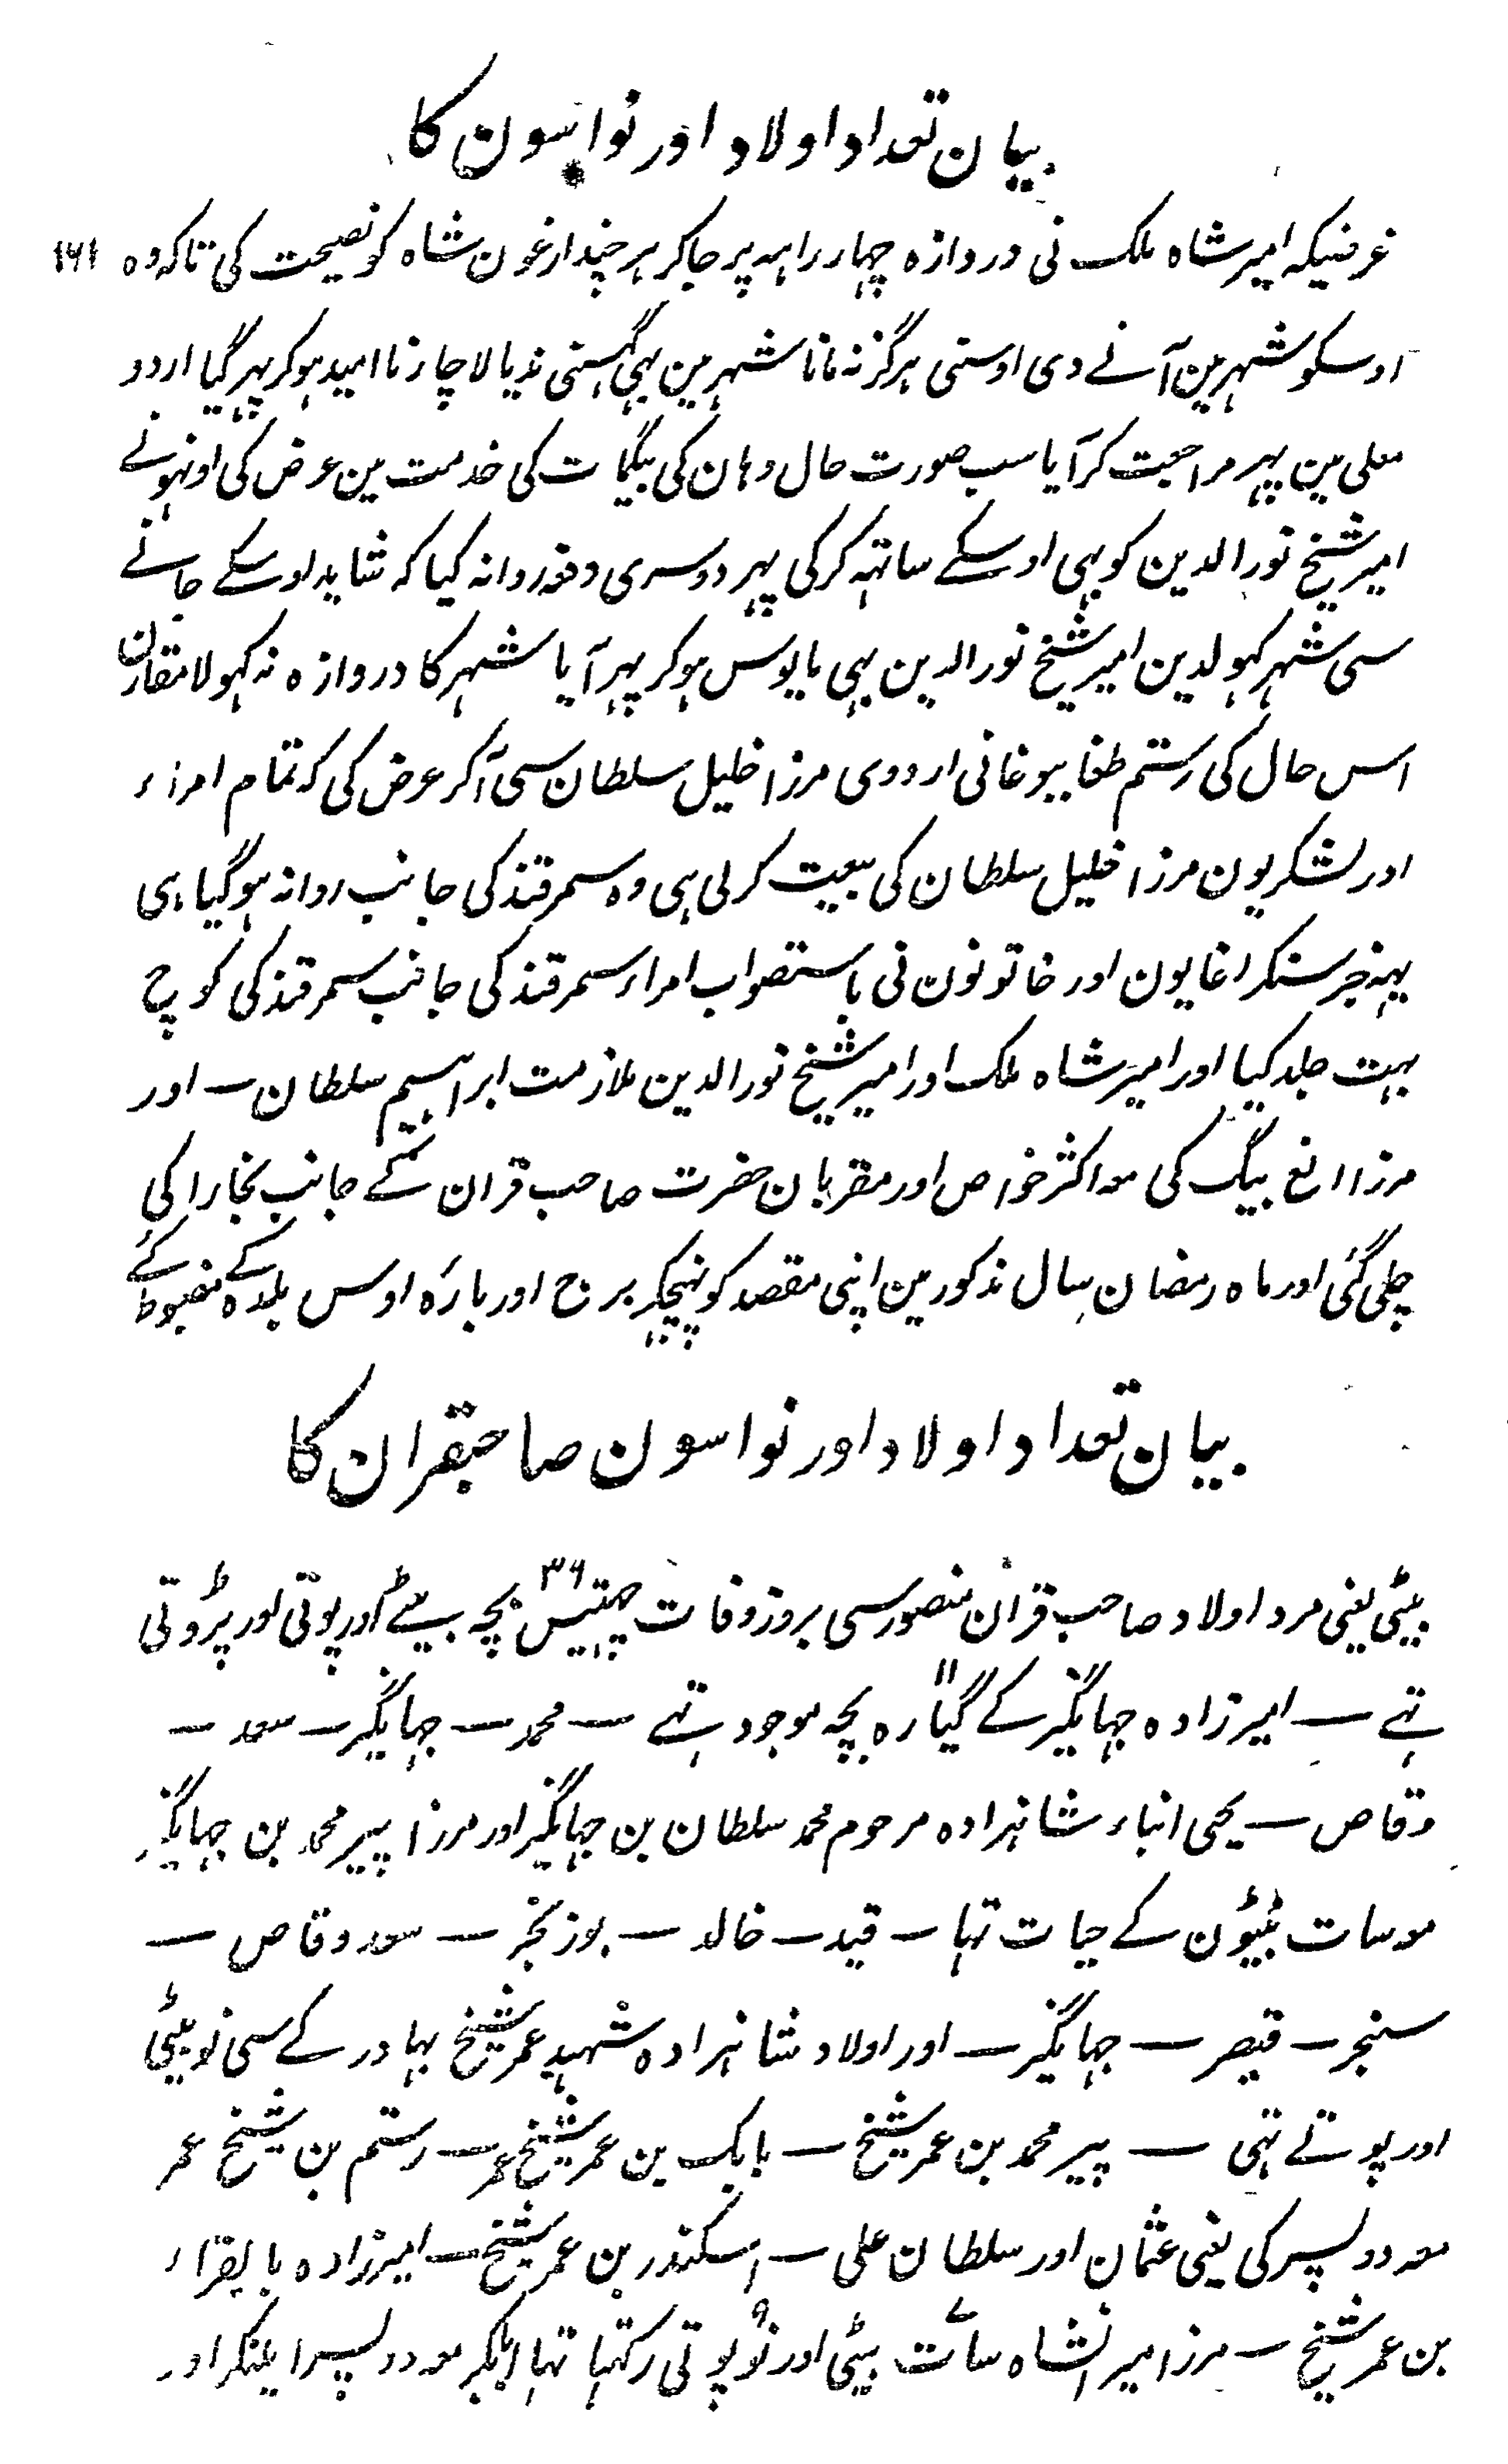 بیان تعداد اولاد اور نواسون کا
۱۶۱
غرضیکہ امیر شاہ ملک نی دروازہ چہار راہہ پر جاکر ہر چند ارغون شاہ کو نصیحت کی تاکہ وہ
اوسکو شہر مین آنے دی اوستی ہرگز نہ مانا شہر مین بہی گہستی ندیا لاچار نا امید ہوکر پہر گیا اردو
معلی مین پہر مراجعت کر آیا سب صورت حال وہان کی بیگمات کی خدمت مین عرض کی اونہونے
امیر شیخ نور الدین کو بہی اوسکے ساتہہ کرکی پہر دوسری دفعہ روانہ کیا کہ شاید اوسکے جانے
سی شہر کہولدین امیر شیخ نور الدین بہی مایوس ہوکر پہر آیا شہر کا دروازہ نہ کہولا مقارن
اس حال کی رستم طغا بیوغانی اردوی مرزا خلیل سلطان سی آکر عرض کی کہ تمام امراء
اور لشکریون مرزا خلیل سلطان کی بیعت کرلی ہی وہ سمرقند کی جانب روانہ ہوگیا ہی
یہہ خبر سنکر اغایون اور خاتونون نی باستصواب امراء سمرقند کی جانب سمرقند کی کوچ
بہت جلد کیا اور امیر شاہ ملک اور امیر شیخ نور الدین ملازمت ابراہیم سلطان ــ اور
مرزا الغ بیگ کی معہ اکثر خواص اور مقربان حضرت صاحب قران کے جانب بخارا کی
چلی گئی اور ماہ رمضان سال مذکور مین اپنی مقصد کو پہنچکر برج اور بارہ اوس بلدہ کے مضبوط کے
بیان تعداد اولاد اور نواسون صاحبقران کا
بیٹی یعنی مرد اولاد صاحب قران منصور سی بروز وفات چہتیس ۳۶ بچہ بیٹے اور پوتی اور پڑوتی
تہے ــ امیرزادہ جہانگیر کے گیارہ ۱۱ بچہ موجود تہے ــ محمد ــ جہانگیر ــ سعد ــ
وقاص ــ یحیی ابناء شاہزادہ مرحوم محمد سلطان بن جہانگیر اور مرزا پیر محمد بن جہانگیر
معہ سات بیٹیون کے حیات تہا ــ قید ــ خالد ــ بوزنجر ــ سعد وقاص ــ
سنجر ــ قیصر ــ جہانگیر ــ اور اولاد شاہزادہ شہید عمر شیخ بہادر کے سی نو بیٹی
اور پوتے تہی ــ پیر محمد بن عمر شیخ ــ بابک بن عمر شیخ عمر ــ رستم بن شیخ عمر
معہ دو پسر کی یعنی عثمان اور سلطان علی ــ اسکندر بن عمر شیخ ــ امیرزادہ بایقراء
بن عمر شیخ ــ مرزا میرانشاہ سات ۷ بیٹی اور نو ۹ پوتی رکہتا تہا ابکر معہ دو پسر ایلنکر اور